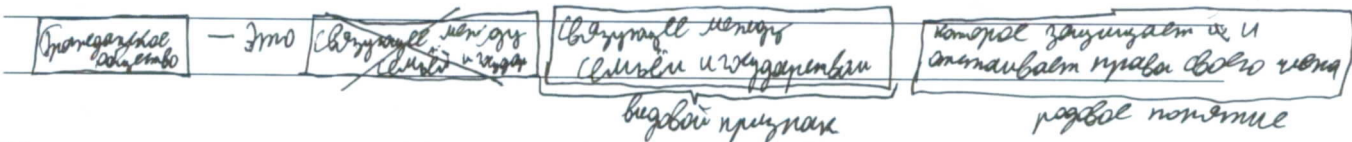 Гражданское общество — это связующее между семьёй и государством которое защищает и отстаивает права своего члена
видовой признак родовое понятие